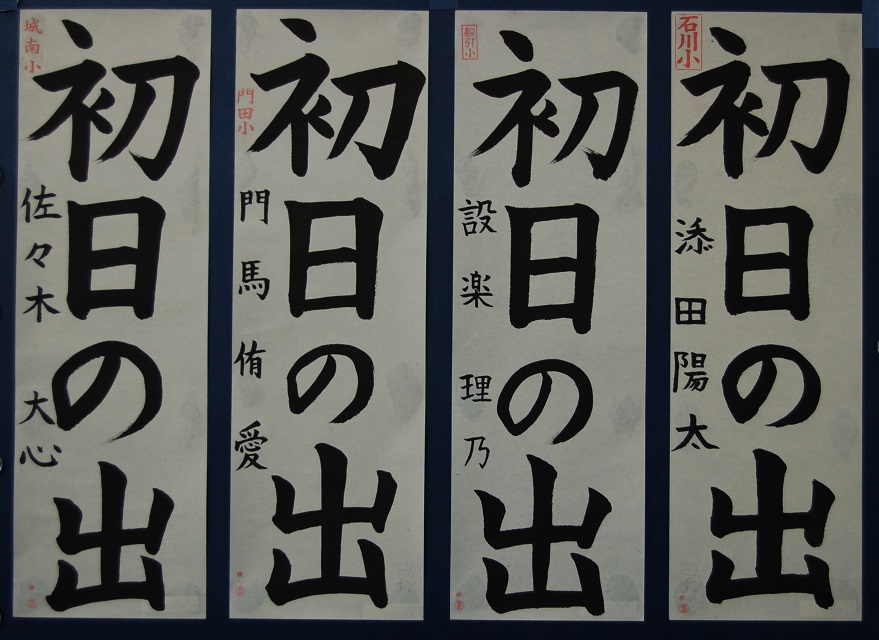 石川小
初日の出
添田陽太
船引小
初日の出
設楽理乃
門田小
初日の出
門馬侑愛
城南小
初日の出
佐々木大心